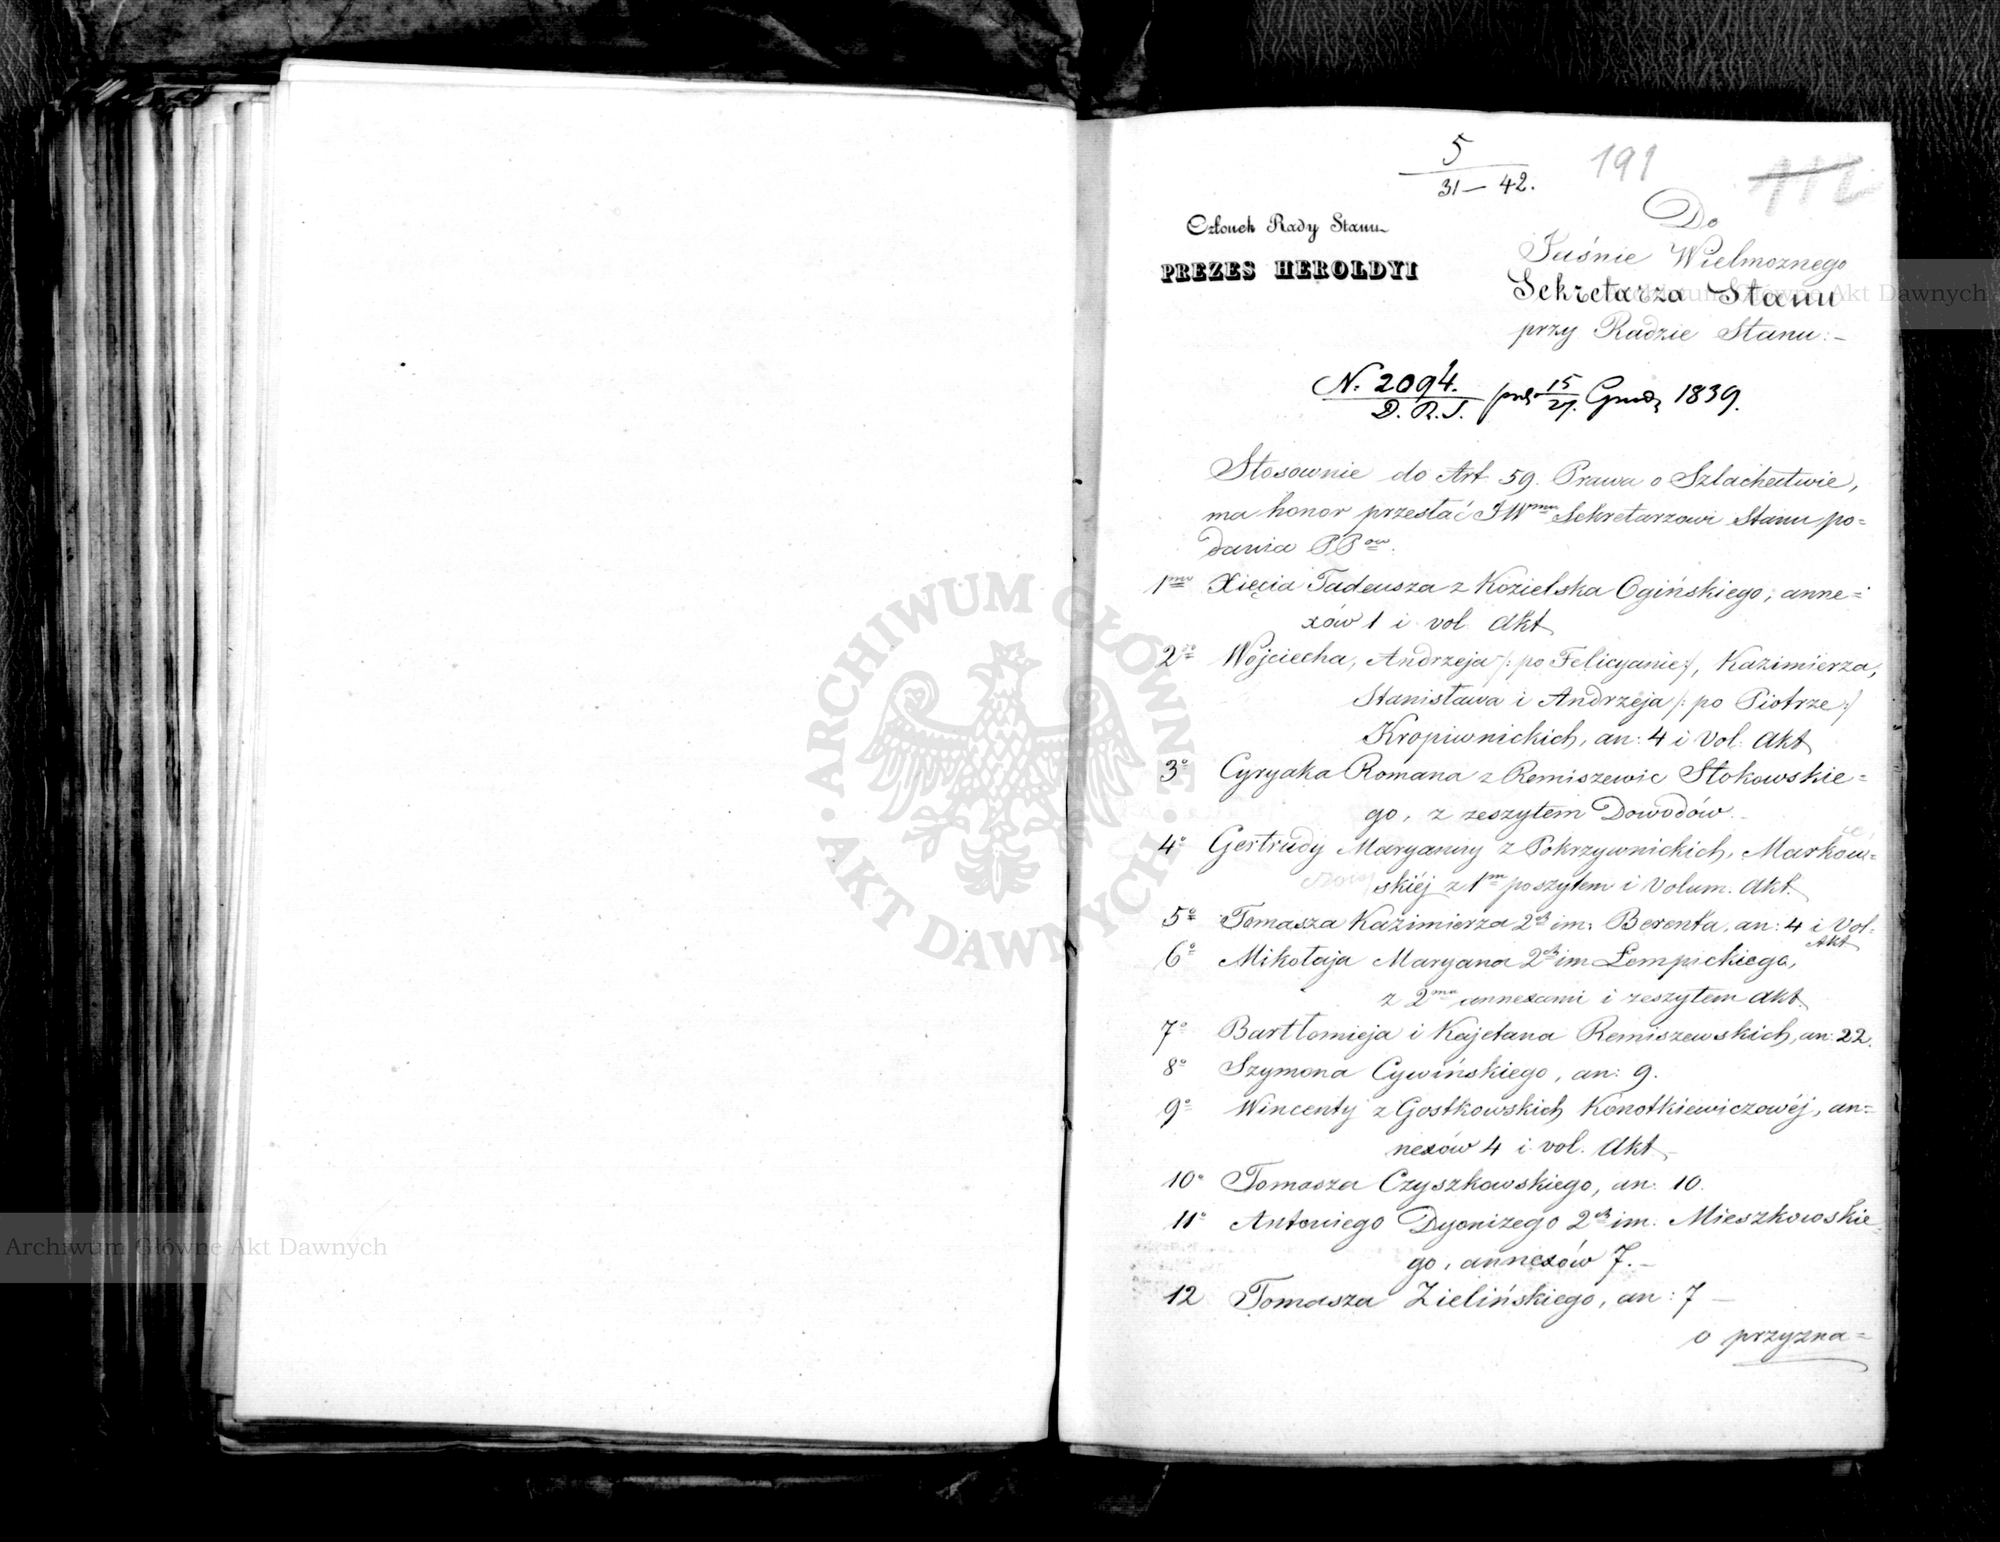 5
31 – 42.
191
112
Członek Rady Stanu
PREZES HEROLDYI
Do
Jaśnie Wielmożnego
Sekretarza Stanu
przy Radzie Stanu:–
N. 2094.
D. R. S.
15
27. Grud. 1839.
Stosownie do Art. 59. Prawa o Szlachectwie,
ma honor przesłać JWmu Sekretarzowi Stanu po=
dania PPow.
1mo Xięcia Tadeusza z Kozielska Ogińskiego, anne=
xów 1 i vol. Akt
2do Wojciecha, Andrzeja /: po Felicyanie :/, Kazimierza,
Stanisława i Andrzeja /: po Piotrze :/
Kropiwnickich, an: 4 i Vol. Akt
3o Cyryaka Romana z Remiszewic Stokowskie=
go, z zeszytem Dowodów. –
4o Gertrudy Maryanny z Pokrzywnickich, Markow=
skiéj z 1m poszytem i Volum. Akt.
5o Tomasza Kazimierza 2ch im. Berenta, an: 4 i Vol.
Akt
6o Mikołaja Maryana 2ch im Łempickiego,
z 2ma annexami i zeszytem Akt
7o Bartłomieja i Kajetana Remiszewskich, an: 22.
8o Szymona Cywińskiego, an: 9.
9o Wincenty z Gostkowskich Konotkiewiczowéj, an=
nexów 4 i vol. Akt
10o Tomasza Czyszkowskiego, an: 10.
11o Antoniego Dyonizego 2ch im. Mieszkowskie
go, annexów 7. –
12 Tomasza Zielińskiego, an: 7 –
o przyzna=
ARCHIWUM GŁÓWNE
AKT DAWNYCH
Archiwum Główne Akt Dawnych
Archiwum Główne Akt Dawnych